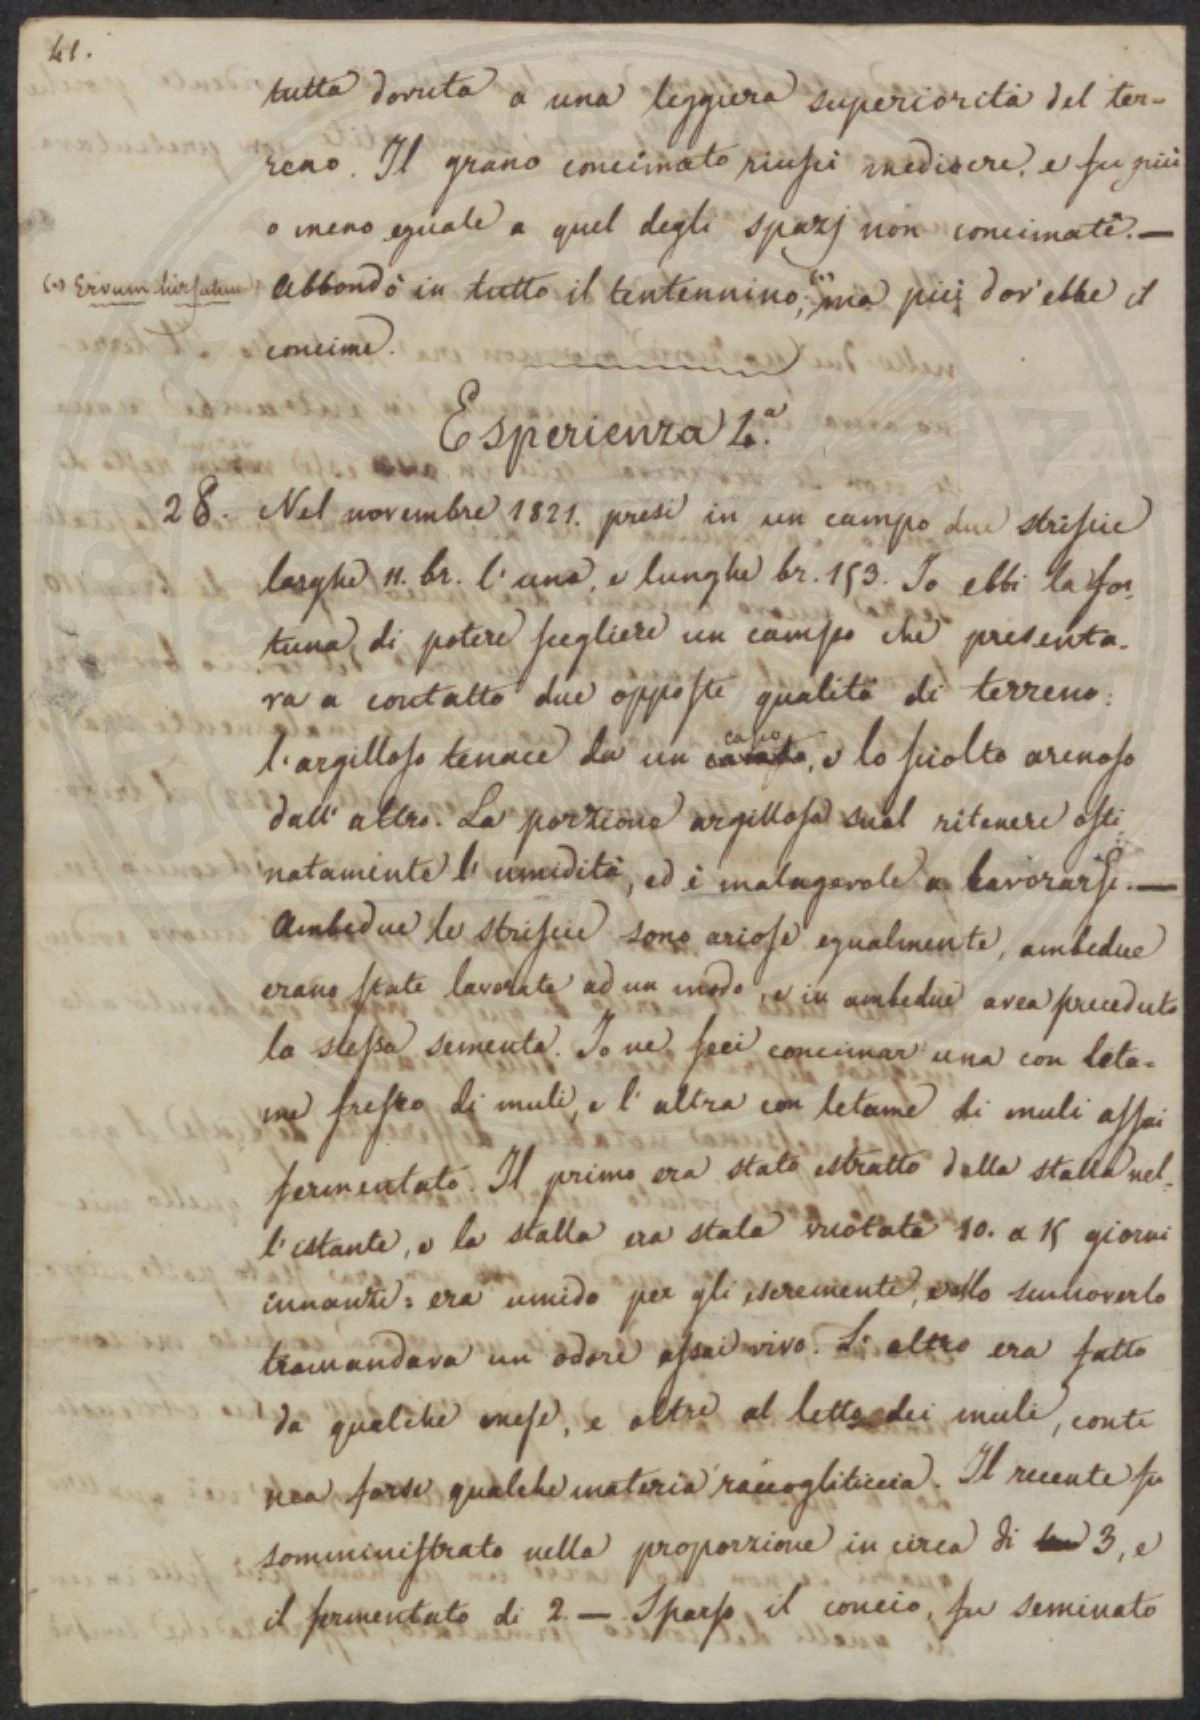 41.
tutta dovuta a una leggiera superiorità del ter-
reno. Il grano concimato riuscì mediocre, e fu più
o meno eguale a quel degli spazj non concimati. —
(*) Ervum hirsutum
Abbondò in tutto il tentennino, (*) ma più dov'ebbe il
concime.
Esperienza 4.a
28. Nel novembre 1821. presi in un campo due striscie
larghe 11. br. l'una, e lunghe br. 153. Io ebbi la for-
tuna di potere scegliere un campo che presenta-
va a contatto due opposte qualità di terreno:
l'argilloso tenace da un capo, e lo sciolto arenoso
dall'altro. La porzione argillosa suol ritenere osti
natamente l'umidità, ed è malagevole a lavorarsi. —
Ambedue le striscie sono ariose egualmente, ambedue
erano state lavorate ad un modo, e in ambedue avea preceduto
la stessa sementa. Io ne feci concimar una con leta-
me fresco di muli, e l'altra con letame di muli assai
fermentato. Il primo era stato estratto dalla stalla nel-
l'istante, e la stalla era stata vuotata 10. a 15 giorni
innanzi: era umido per gli escrementi, e allo smuoverlo
tramandava un odore assai vivo. L'altro era fatto
da qualche mese, e oltre al letto dei muli, conte
nea forse qualche materia raccogliticcia. Il recente fu
somministrato nella proporzione in circa di 3, e
il fermentato di 2. — Sparso il concio, fu seminato